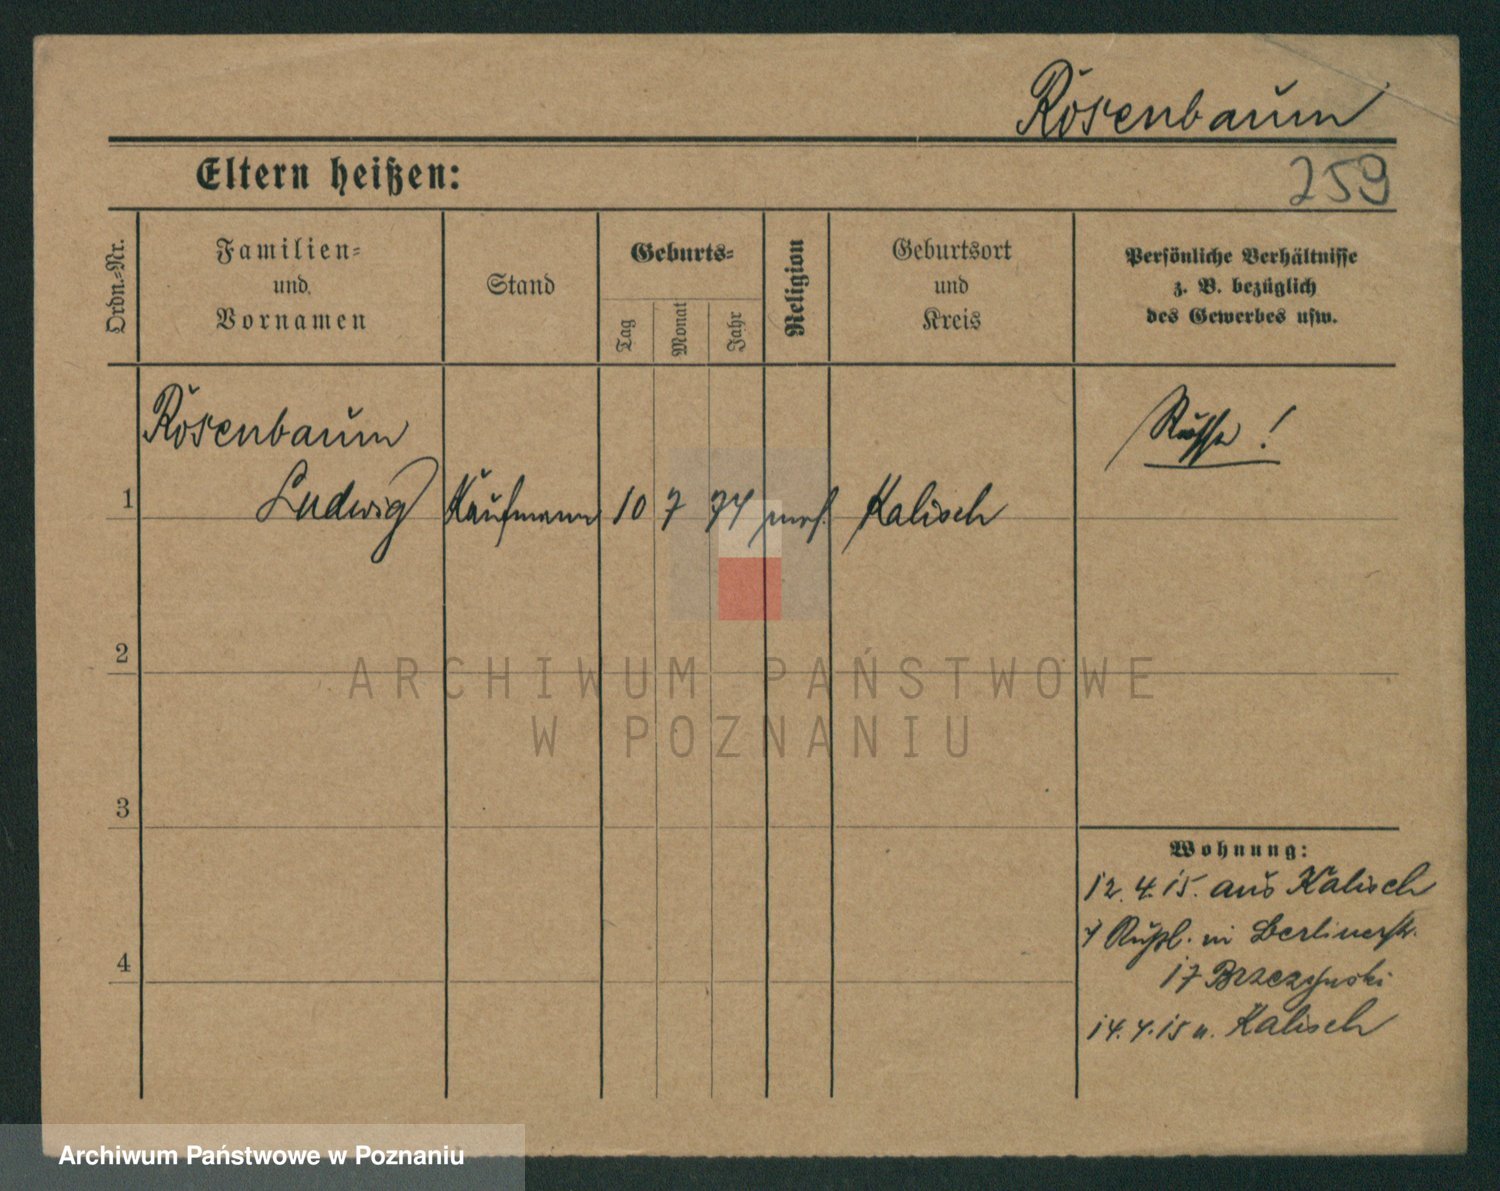 Rosenbaum
Eltern heißen:
259
Ordn.-Nr.
Familien-
und
Vornamen
Stand
Geburts-
Tag
Monat
Jahr
Religion
Geburtsort
und
Kreis
Persönliche Verhältnisse
z. B. bezüglich
des Gewerbes usw.
Rosenbaum
Russe!
1 Ludwig Kaufmann 10 7 74 mos. Kalisch
2
ARCHIWUM PAŃSTWOWE
W POZNANIU
3
Wohnung:
12.4.15. aus Kalisch
Rußl. in Berlinerstr.
4
17 Brzezynski
14.4.15 n. Kalisch
Archiwum Państwowe w Poznaniu